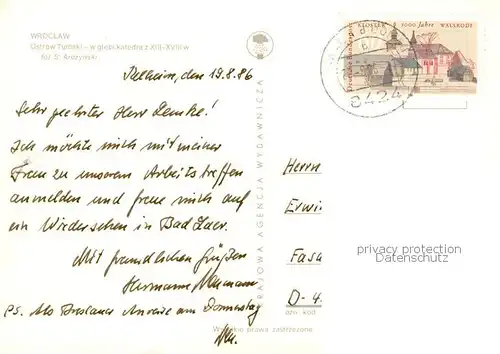 WROCŁAW
Ostrów Tumski — w głębi katedra z XIII-XVIII w
fot. S. Arczyński
KRAJOWA AGENCJA WYDAWNICZA
KLOSTER 1000 Jahre WALSRODE
8424
den 19.8.86
Sehr geehrter Herr Lemke!
Ich möchte mich mit meiner
Frau zu unserem Arbeitstreffen
anmelden und freue mich auf
ein Wiedersehen in Bad Laer.
Mit freundlichen Grüßen
Hermann
PS. Als Breslauer Anreise am Donnerstag
Herrn
Erwi
Fasa
D-4
privacy protection
Datenschutz
Wszelkie prawa zastrzeżone